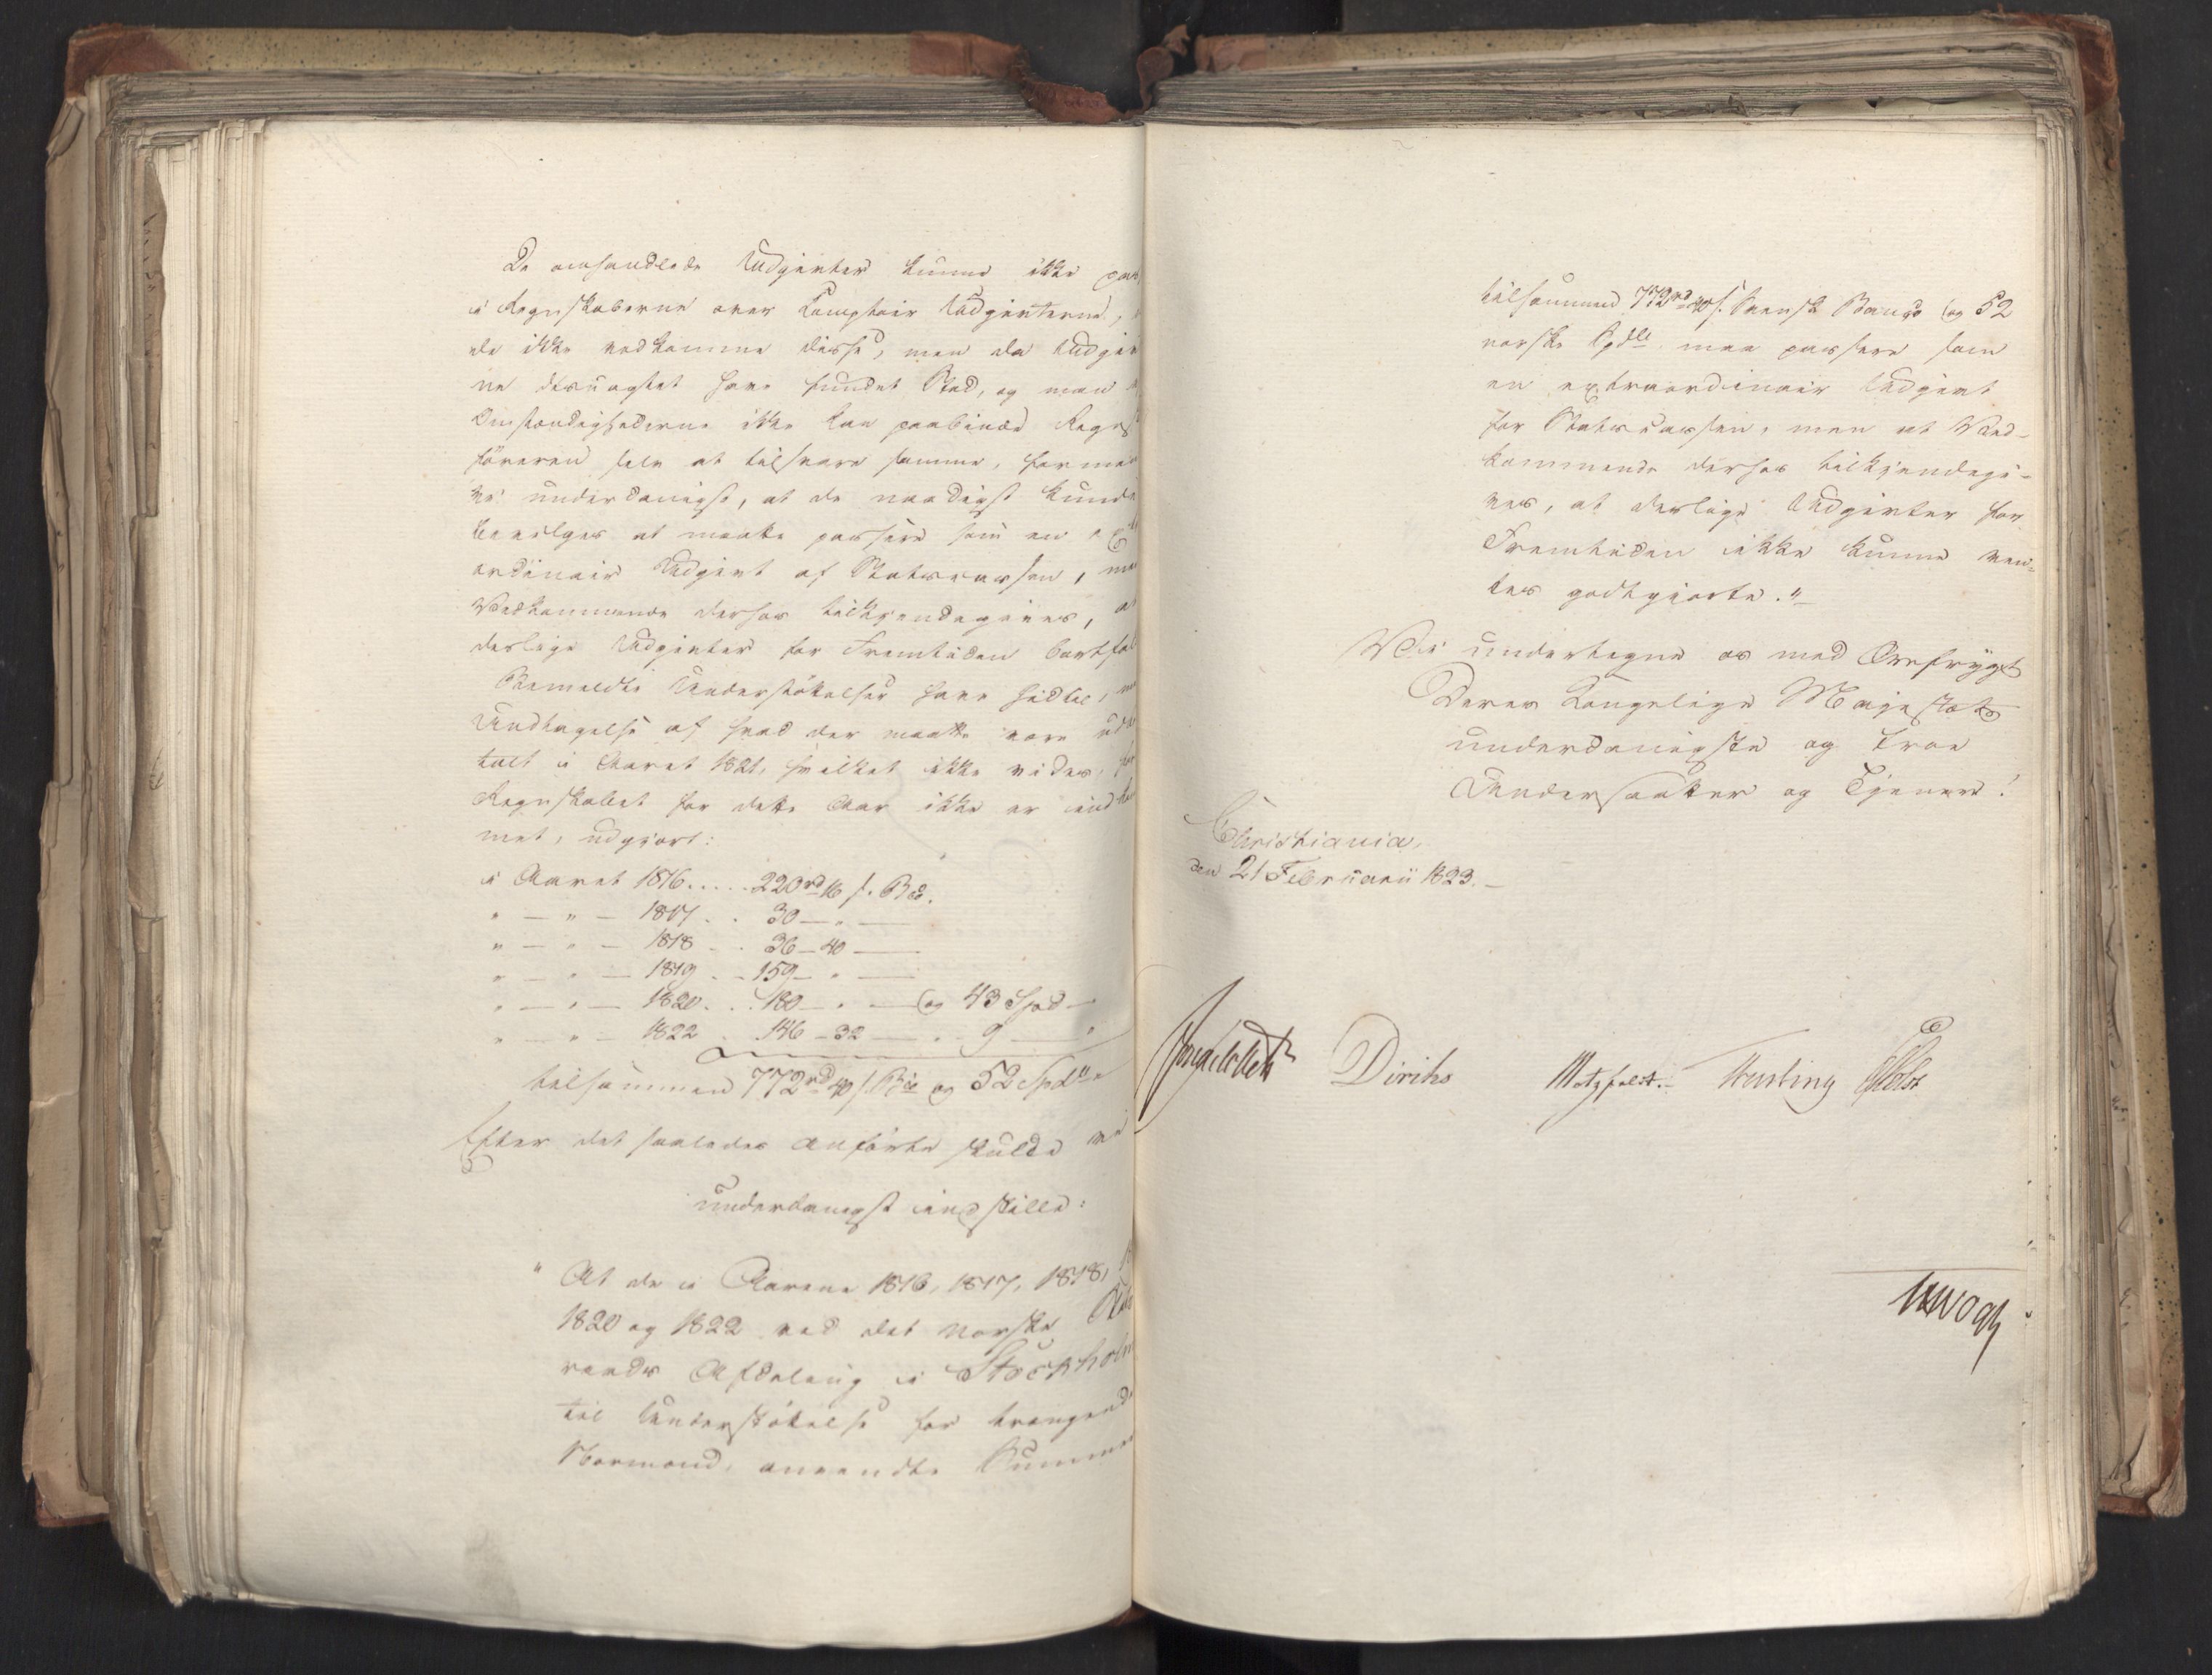 De omhandlede Udgivter kunne ikke pas
i Regnskaberne over Comptoir Udgivterne,
de ikke vedkomme disse, men da Udgiv
ne desuagtet have fundet Sted, og man
Omstændighederne ikke kan paabinde Regns
föreren selv at tilsvare samme, formene
vi underdanigst, at de naadigst kunde
bevilges at maatte passere som en ext
ordinair Udgivt af Statscassen, men
Vedkommende derhos tilkjendegives, at
deslige Udgivter for Fremtiden bortfal
Bemeldte Understöttelser have hidtil, m
Undtagelse af hvad der maatte være udb
talt i Aaret 1821, hvilket ikke vides, for
Regnskabet for dette Aar ikke er indkom
met, udgjort:
i Aaret 1816 . . . . . 220rd 16 s. Bco.
" — " — 1817 . . 30 — " —
" — " — 1818 . . 36 — 40 —
" — " — 1819 . . 159 — " —
" — " — 1820 . . 180 — " — og 43 Spd —
" — " — 1822 . . 146 — 32 — " 9 — "
tilsammen 772rd 40 s. Bco og 52 Spdlr
Efter det saaledes anförte skulde vi
underdanigst indstille:
" At de i Aarene 1816, 1817, 1818,
1820 og 1822 ved det norske Stats
raads Afdeling i Stockholm
til Understöttelse for trængende
Normænd, anvendte Summer
tilsammen 772rd 40 s. Svensk Banco og 52
norske Spdlr maa passere som
en extraordinair Udgivt
for Statscassen, men at Ved-
kommende derhos tilkjendegi-
ves, at deslige Udgivter for
Fremtiden ikke kunne ven-
tes godtgjorte."
Vi undertegne os med Ærefrygt
Deres Kongelige Majestæts
underdanigste og troe
Undersaatter og Tjenere!
Christiania,
den 21 Februarii 1823.
Diriks Motzfeldt. Krebting Holst
JHVogt